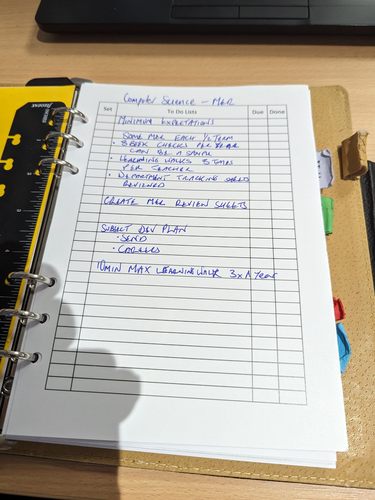 Computer Science - M&R
Set To Do Lists Due Done
MINIMUM EXPECTATIONS
SOME M&R EACH 1/2 TERM
• 3 BOOK CHECKS PER YEAR
CAN BE A SAMPLE
• LEARNING WALKS 3 TIMES
PER TEACHER
• DEPARTMENT TRACKING SHEED
REVIEWED
CREATE M&R REVIEW SHEETS
SUBJECT DEV PLAN
• SEND
• CAREERS
10MIN MAX LEARNING WALK 3 x A Year